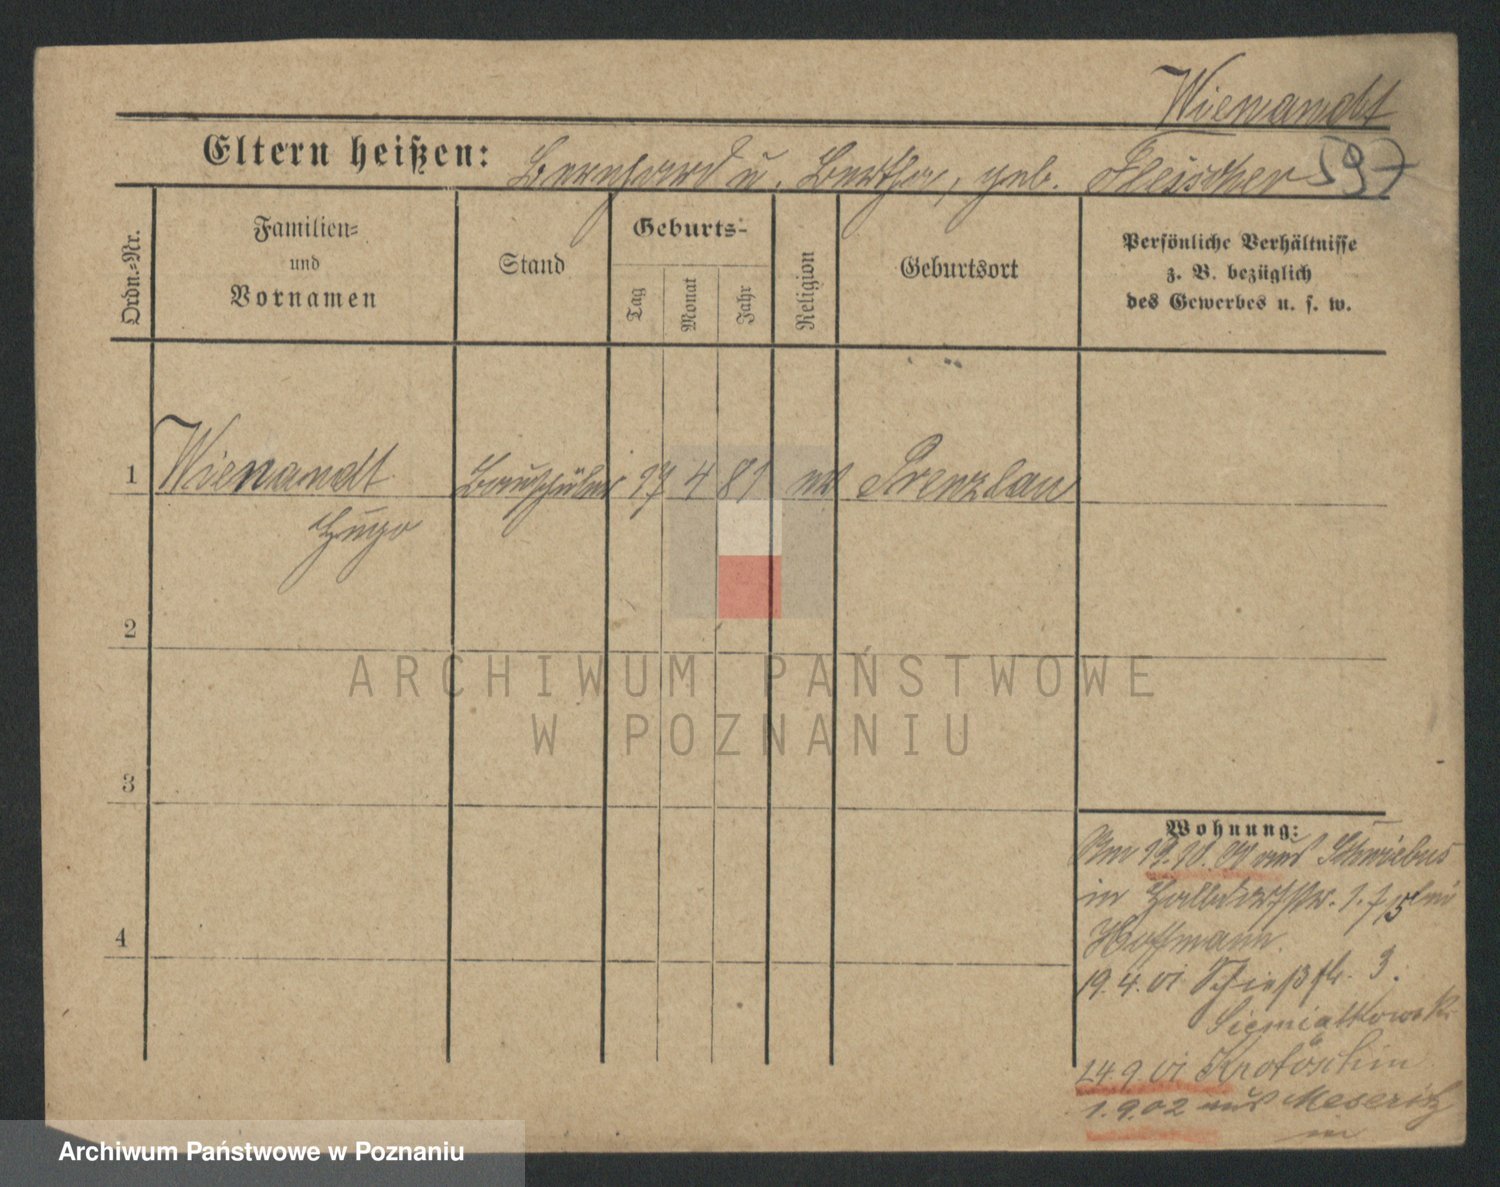 Wienandt
Eltern heißen: Bernhard u. Bertha, geb. Fleischer 597
Ordn.-Nr.
Familien-
und
Vornamen
Stand
Geburts-
Tag
Monat
Jahr
Religion
Geburtsort
Persönliche Verhältnisse
z. B. bezüglich
des Gewerbes u. s. w.
1 Wienandt Bauschüler 17 4 81 ev Prenzlau
Hugo
2
3
4
Wohnung:
19.10.00 aus Schwiebus
in Halbdorfstr.
Hoffmann.
19.4.01 Schießstr. 3.
Siemiatkowski
24.9.01 Krotoschin
1.9.02 aus Meseritz
in
ARCHIWUM PAŃSTWOWE
W POZNANIU
Archiwum Państwowe w Poznaniu